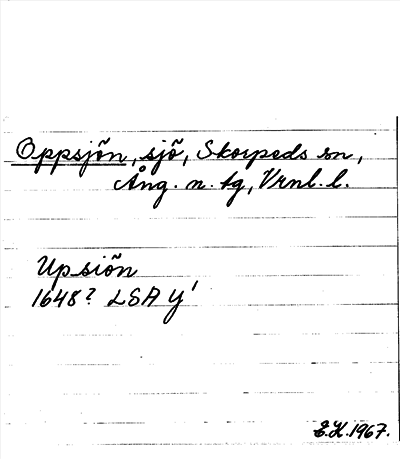 Oppsjön, sjö, Skorpeds sn,
Ång. n. tg, Vrnl. l.
Upsiön
1648? LSA Y'
E.K. 1967.